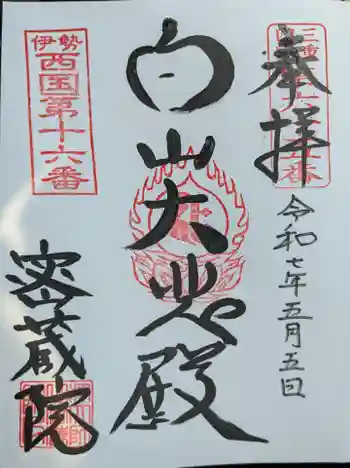 奉拝
令和七年五月五日
白山大悲殿
伊勢
西国第十六番
密蔵院